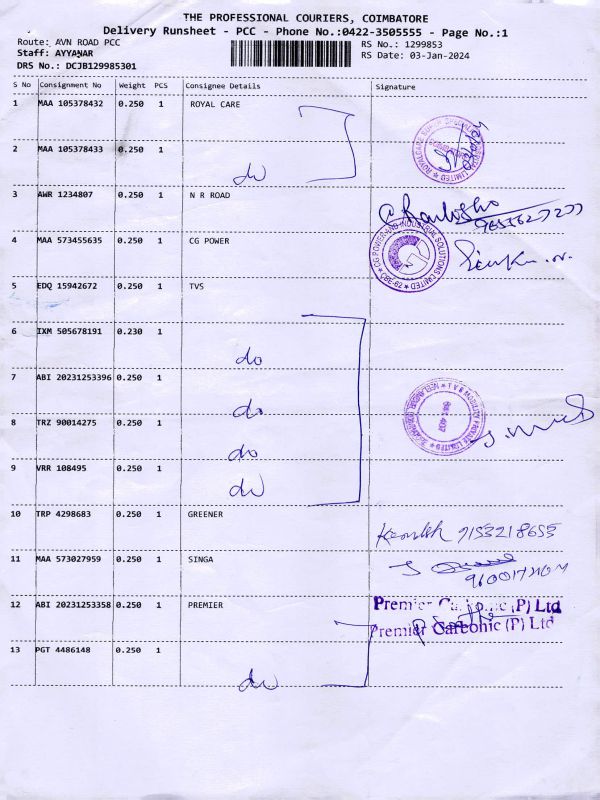 THE PROFESSIONAL COURIERS, COIMBATORE
Delivery Runsheet - PCC - Phone No.:0422-3505555 - Page No.:1
Route: AVN ROAD PCC
RS No.: 1299853
Staff: AYYANAR
RS Date: 03-Jan-2024
DRS No.: DCJB129985301
S No Consignment No Weight PCS Consignee Details Signature
1 MAA 105378432 0.250 1 ROYAL CARE
2 MAA 105378433 0.250 1
do
3 AWR 1234807 0.250 1 N R ROAD
4 MAA 573455635 0.250 1 CG POWER
CG POWER AND INDUSTRIAL SOLUTIONS LIMITED
5 EDQ 15942672 0.250 1 TVS
6 IXM 505678191 0.230 1
do
7 ABI 20231253396 0.250 1
do
8 TRZ 90014275 0.250 1
do
9 VRR 108495 0.250 1
do
10 TRP 4298683 0.250 1 GREENER
9153218655
11 MAA 573027959 0.250 1 SINGA
12 ABI 20231253358 0.250 1 PREMIER
Premier Carbonic (P) Ltd
Premier Carbonic (P) Ltd
13 PGT 4486148 0.250 1
do